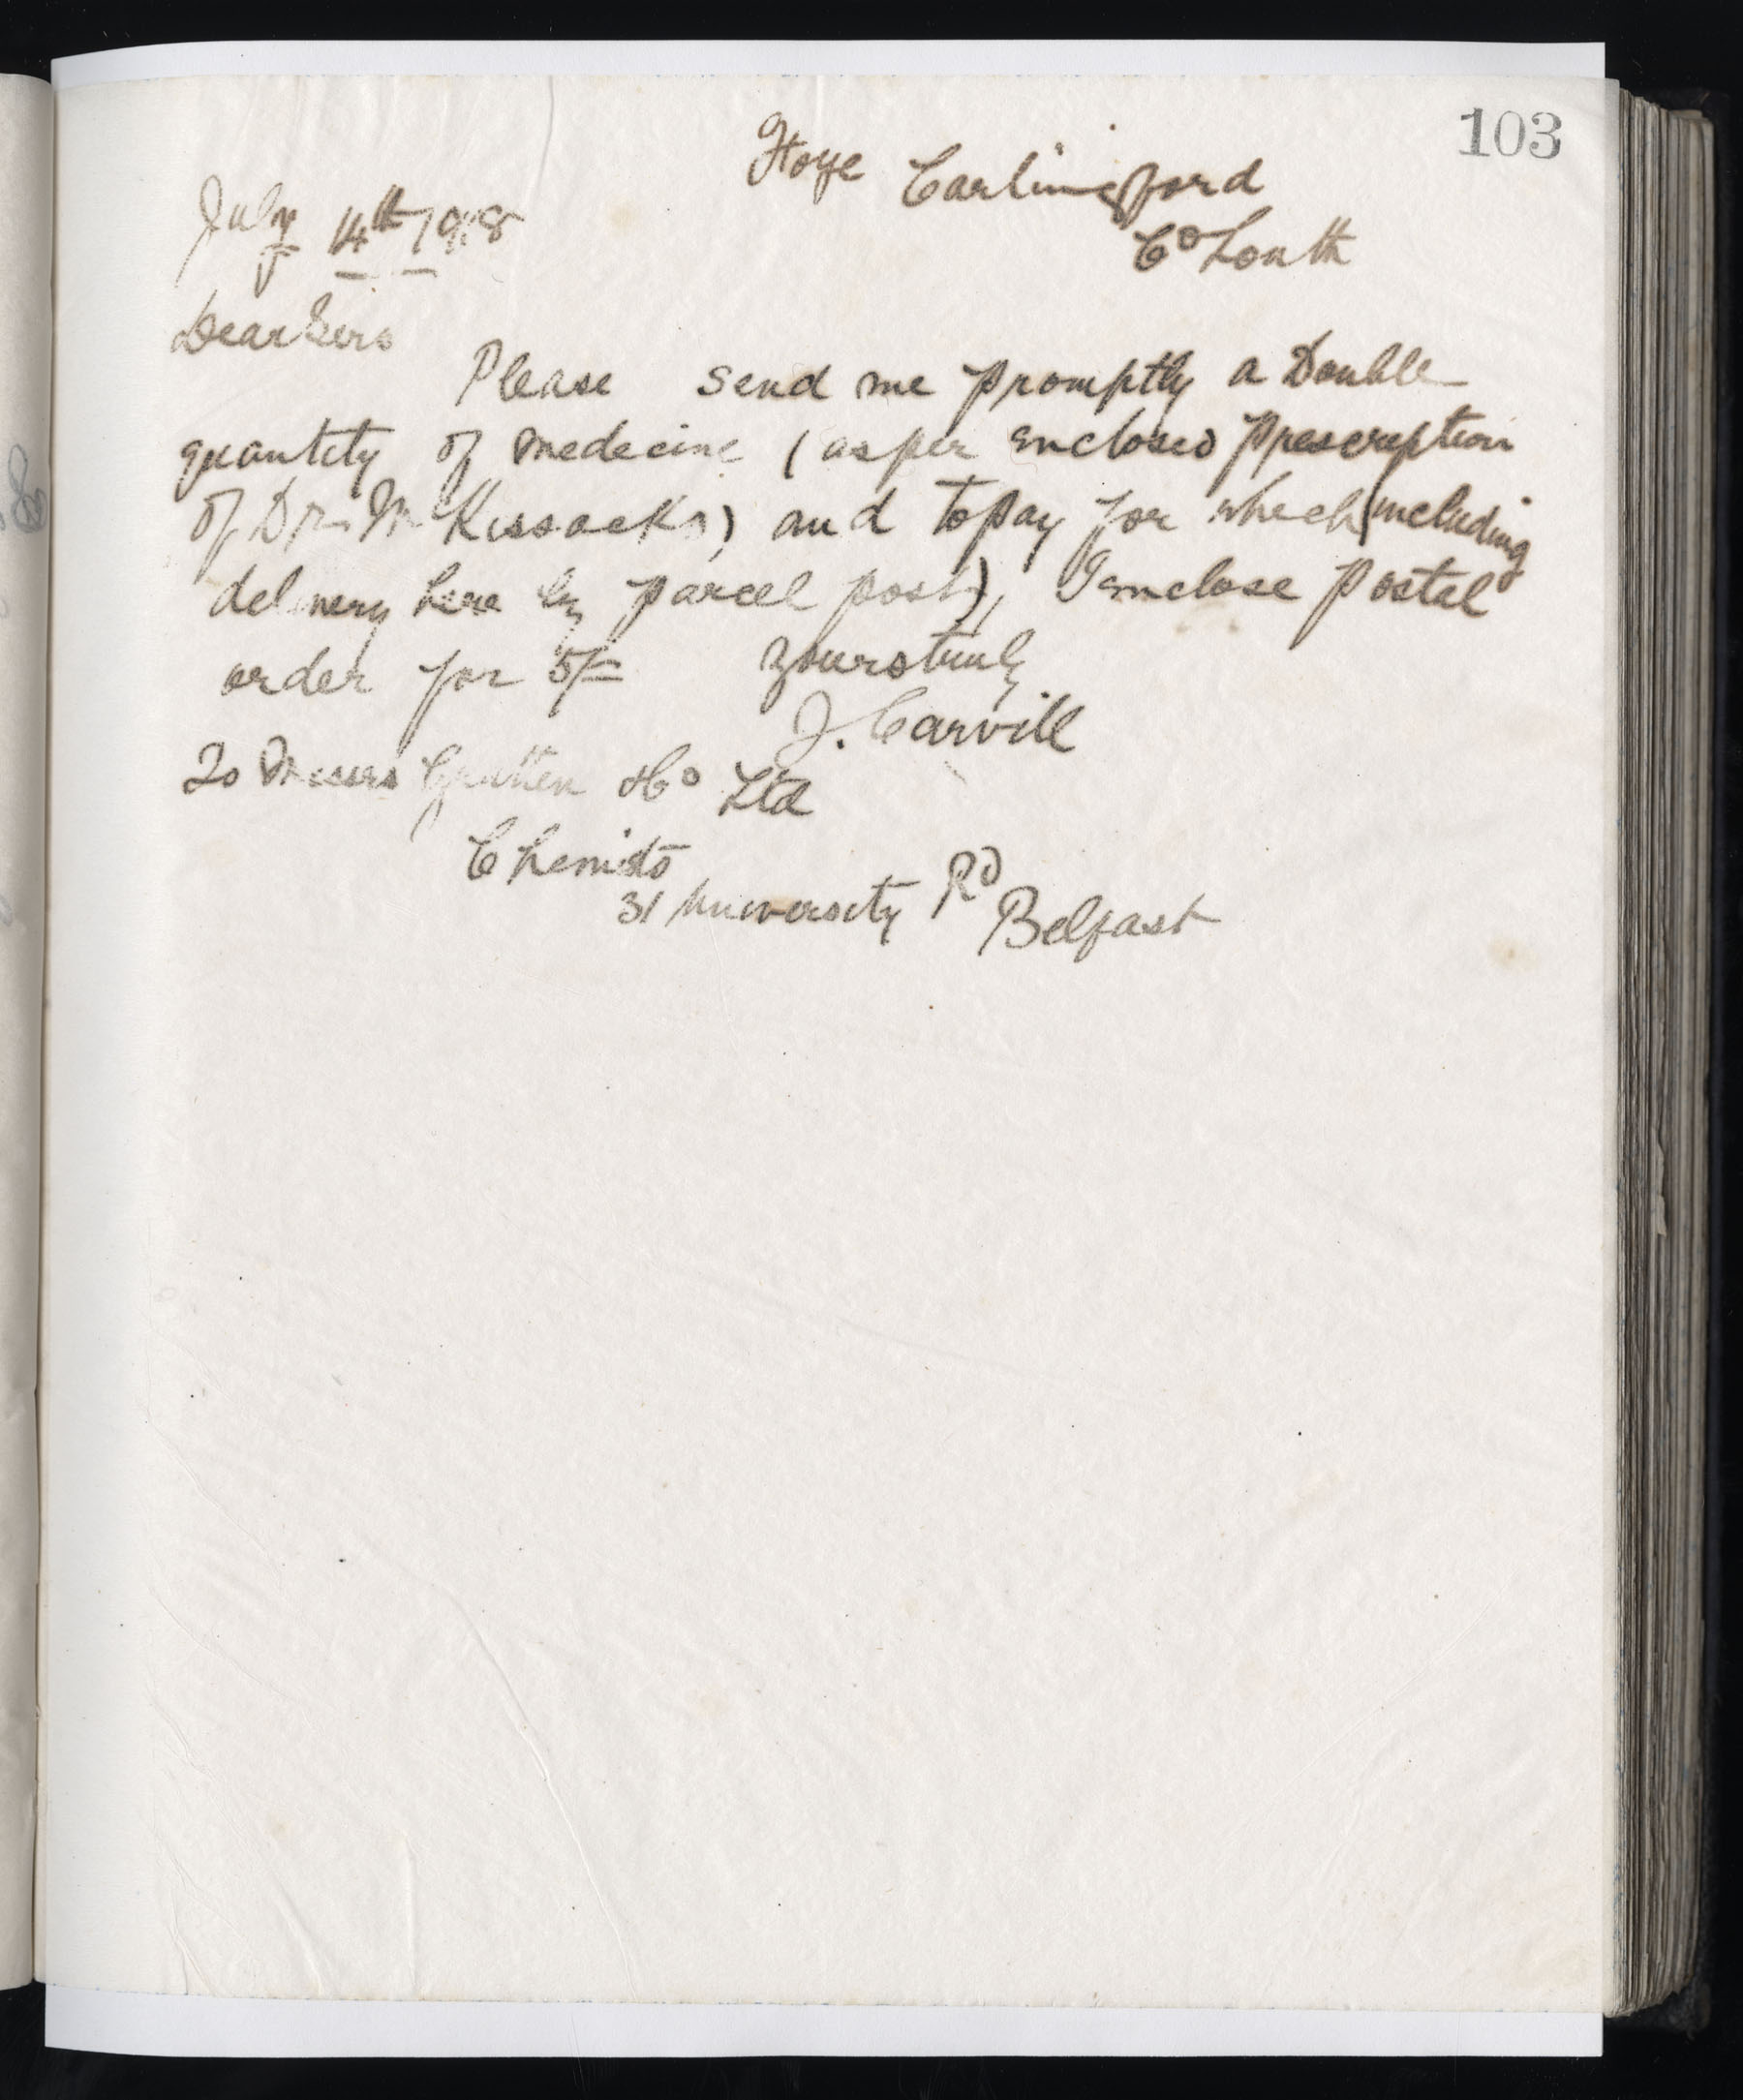 103
Carlingford
Co Louth
July 14th 1918
Dear Sirs
Please send me promptly a Double
quantity of medecine (as per enclosed prescription
of Dr. Mc Kissacks) and to pay for which (including
delivery here by parcel post), I enclose Postal
order for 5/= yours truly
J. Carvill
To Messrs Grattan & Co Ltd
Chemists
31 University Rd
Belfast